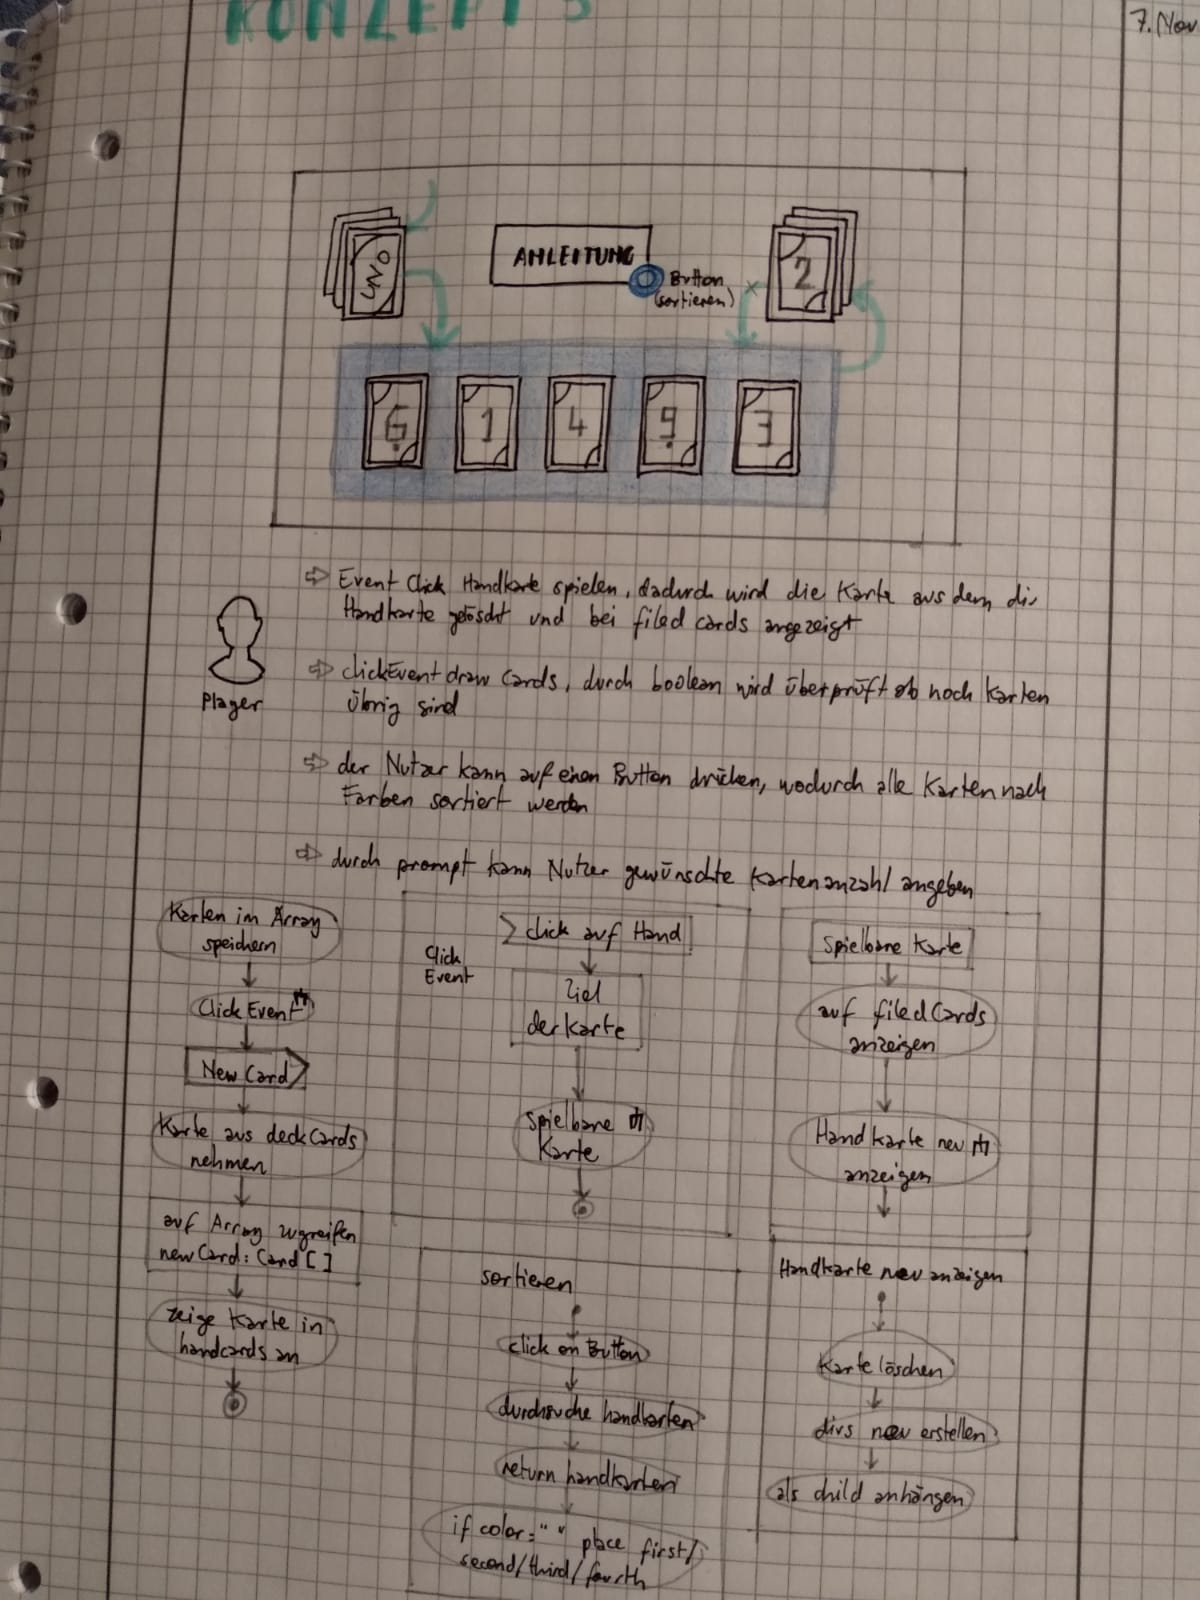 KONZEPT 3
7. Nov
UNO
ANLEITUNG
Button
(sortieren)
2
6. 1 4 9. 3
Player
⇨ Event Click Handkarte spielen, dadurch wird die Karte aus dem div
Handkarte gelöscht und bei filed cards angezeigt
⇨ clickEvent draw Cards, durch boolean wird überprüft ob noch Karten
übrig sind
⇨ der Nutzer kann auf einen Button drücken, wodurch alle Karten nach
Farben sortiert werden
⇨ durch prompt kann Nutzer gewünschte Kartenanzahl angeben
Karten im Array
speichern
Click Event
New Card
Karte aus deckCards
nehmen
auf Array zugreifen
newCard: Card[]
zeige Karte in
handcards an
Click
Event
click auf Hand
Ziel
der Karte
spielbare
Karte
spielbare Karte
auf filedCards
anzeigen
Handkarte neu
anzeigen
sortieren
click on Button
durchsuche handkarten
return handkarten
if color = " " place first/
second/third/fourth
Handkarte neu anzeigen
Karte löschen
divs neu erstellen
als child anhängen